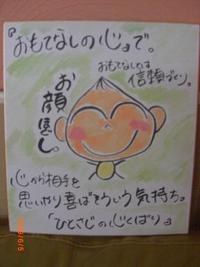 『おもてなしの心』で。
おもてなしは
信頼づくり。
お顔
心から相手を
思いやり喜ばそういう気持ち。
「ひとさじの心くばり」